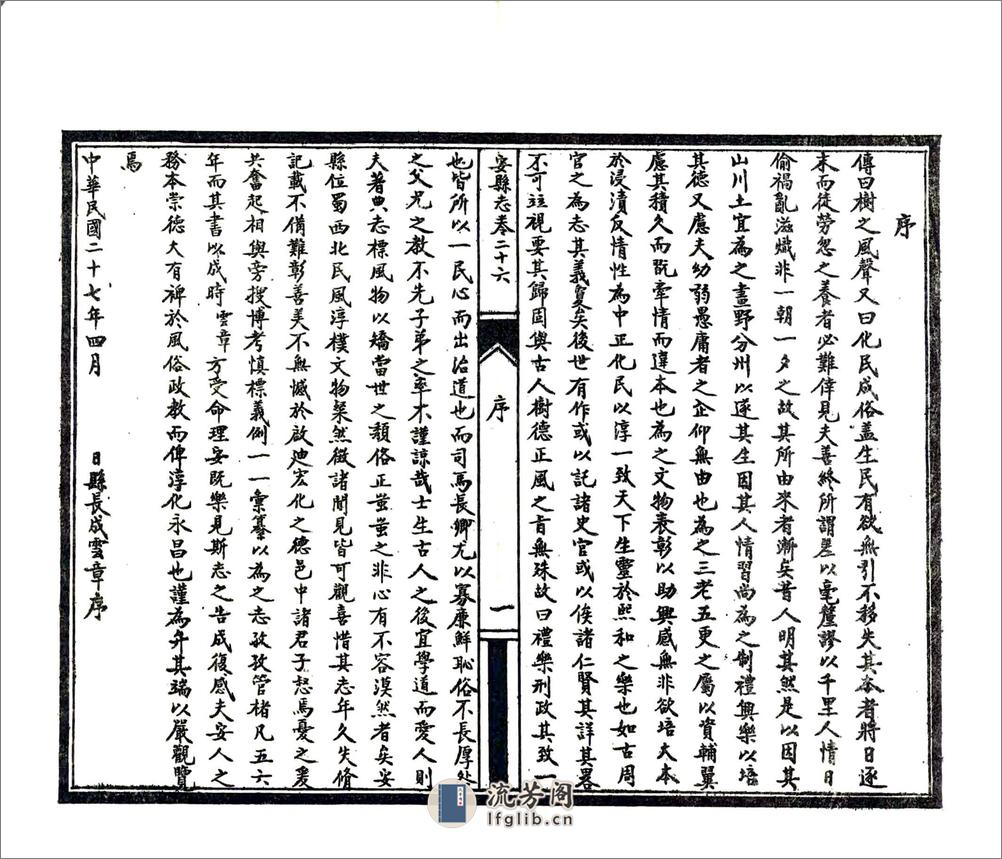 序
傳曰樹之風聲又曰化民成俗蓋生民有欲無引不移失其本者將日逐
末而徒勞忽之養者必難倖見夫善終所謂差以毫釐謬以千里人情日
偷禍亂滋熾非一朝一夕之故其所由來者漸矣昔人明其然是以因其
山川土宜為之畫野分州以遂其生因其人情習尚為之制禮興樂以培
其德又慮夫幼弱愚庸者之企仰無由也為之三老五更之屬以資輔翼
慮其積久而翫牽情而違本也為之文物表彰以助興感無非欲培夫本
於浸漬反情性為中正化民以淳一致天下生靈於熙和之樂也如古周
官之為志其義敻矣後世有作或以託諸史官或以俟諸仁賢其詳其畧
不可竝視要其歸固與古人樹德正風之旨無殊故曰禮樂刑政其致一
安縣志卷二十六
序
一
也皆所以一民心而出治道也而司馬長卿尤以寡廉鮮恥俗不長厚咎
之父兄之教不先子弟之率不謹諒哉士生古人之後宜學道而愛人則
夫著典志標風物以矯當世之頹俗正蚩蚩之非心有不容漠然者矣安
縣位蜀西北民風淳樸文物粲然徵諸聞見皆可觀喜惜其志年久失脩
記載不備難彰善美不無憾於啟迪宏化之德邑中諸君子惄焉憂之爰
共奮起相與旁搜博考慎標義例一一彙纂以為之志孜孜管楮凡五六
年而其書以成時雲章方受命理安既樂見斯志之告成復感夫安人之
務本崇德大有裨於風俗政教而俾淳化永昌也謹為弁其端以嚴觀覽
焉
中華民國二十七年四月　日縣長成雲章序
流芳閣
lfglib.cn